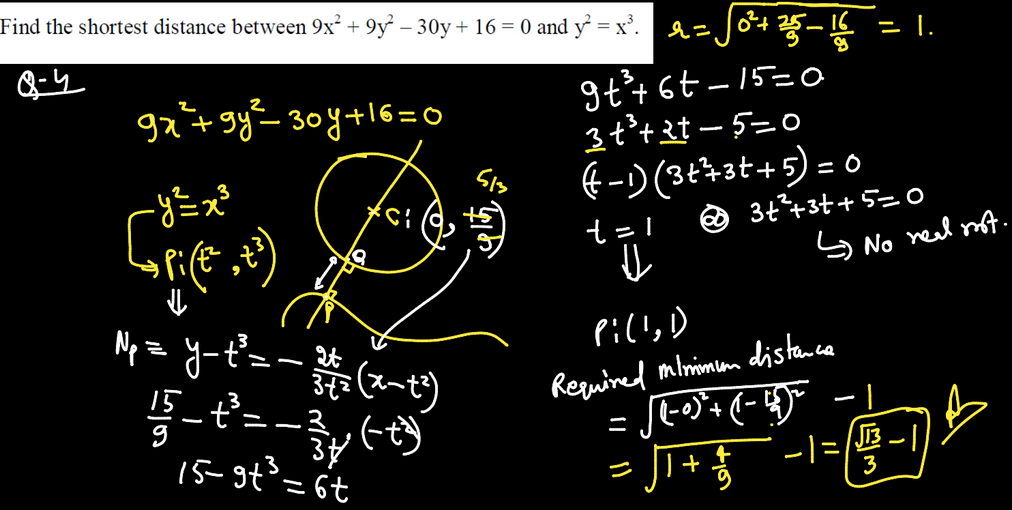 Find the shortest distance between 9x² + 9y² – 30y + 16 = 0 and y² = x³.
r = √(0² + 25/9 – 16/9) = 1.
Q-4
9x² + 9y² – 30y + 16 = 0
y² = x³
P: (t², t³)
C: (0, 15/9)
5/3
Q
P
⇓
Np = y – t³ = – 2t/3t² (x – t²)
15/9 – t³ = – 2/3t (–t²)
15 – 9t³ = 6t
9t³ + 6t – 15 = 0
3t³ + 2t – 5 = 0
(t – 1)(3t² + 3t + 5) = 0
t = 1 or 3t² + 3t + 5 = 0
↳ No real root.
⇓
P: (1, 1)
Required minimum distance
= √((1–0)² + (1 – 15/9)²) – 1
= √(1 + 4/9) – 1 = √13/3 – 1 A